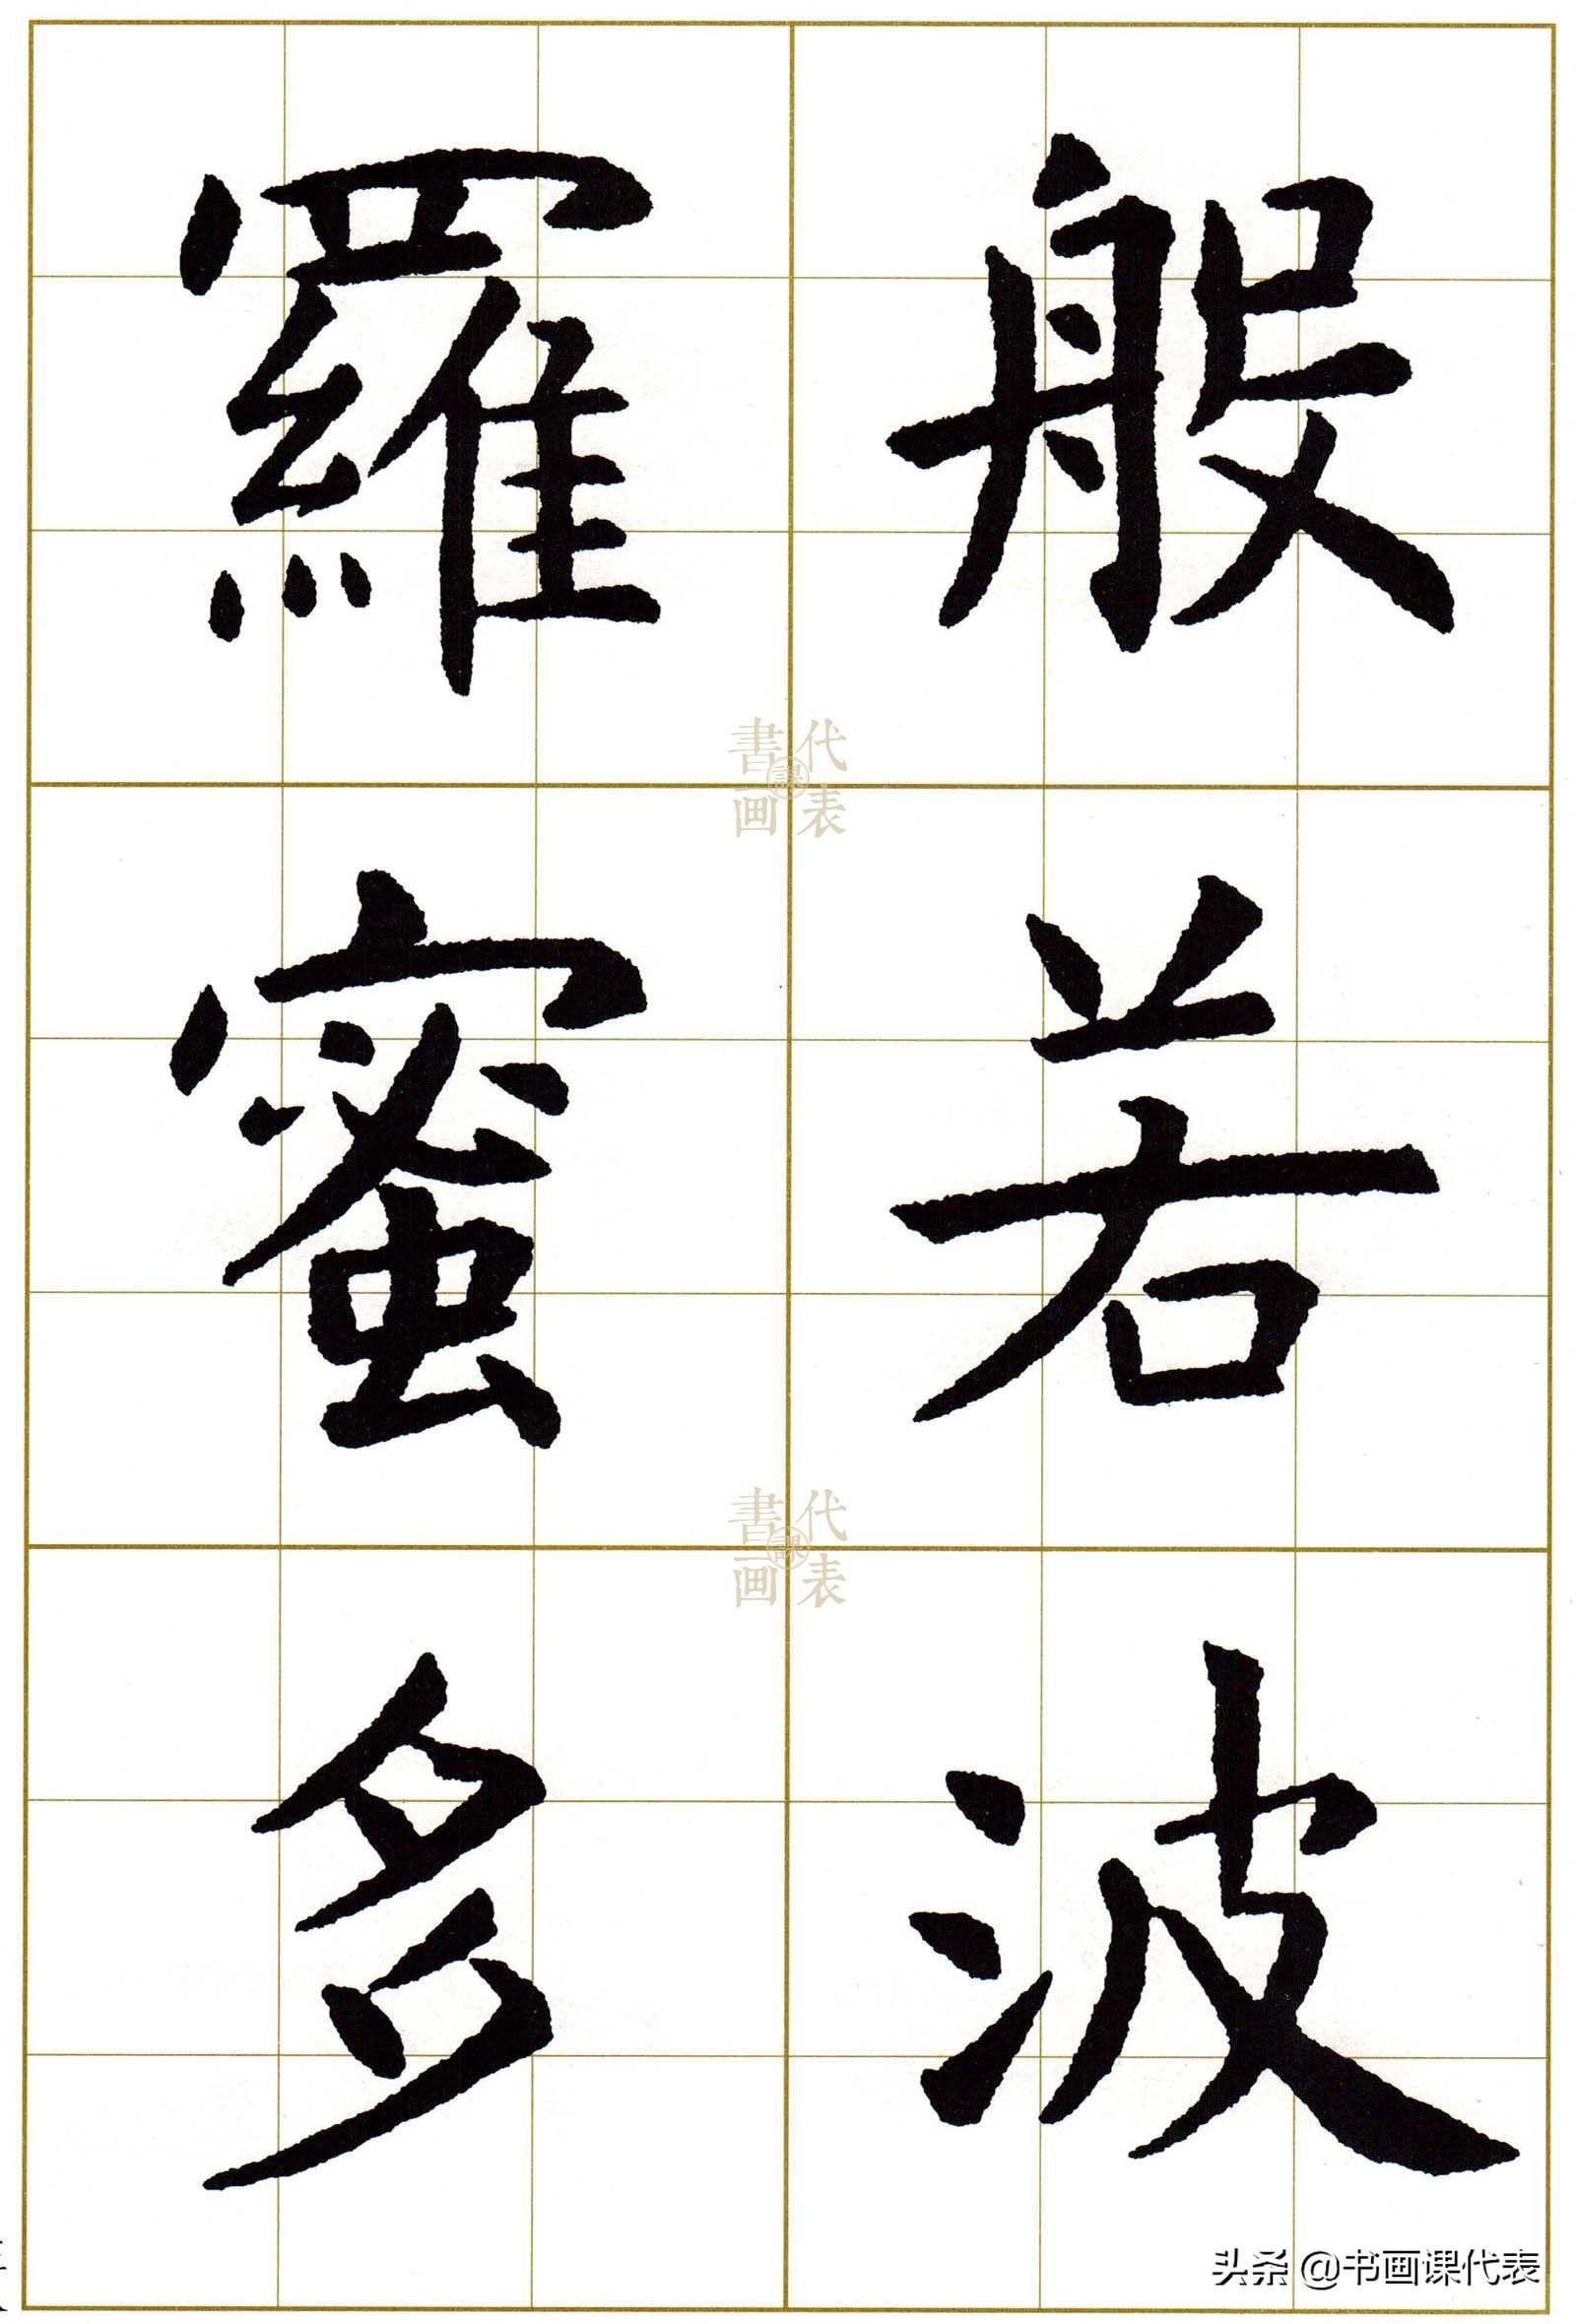 般若波
羅蜜多
書画課代表
書画課代表
头条 @书画课代表